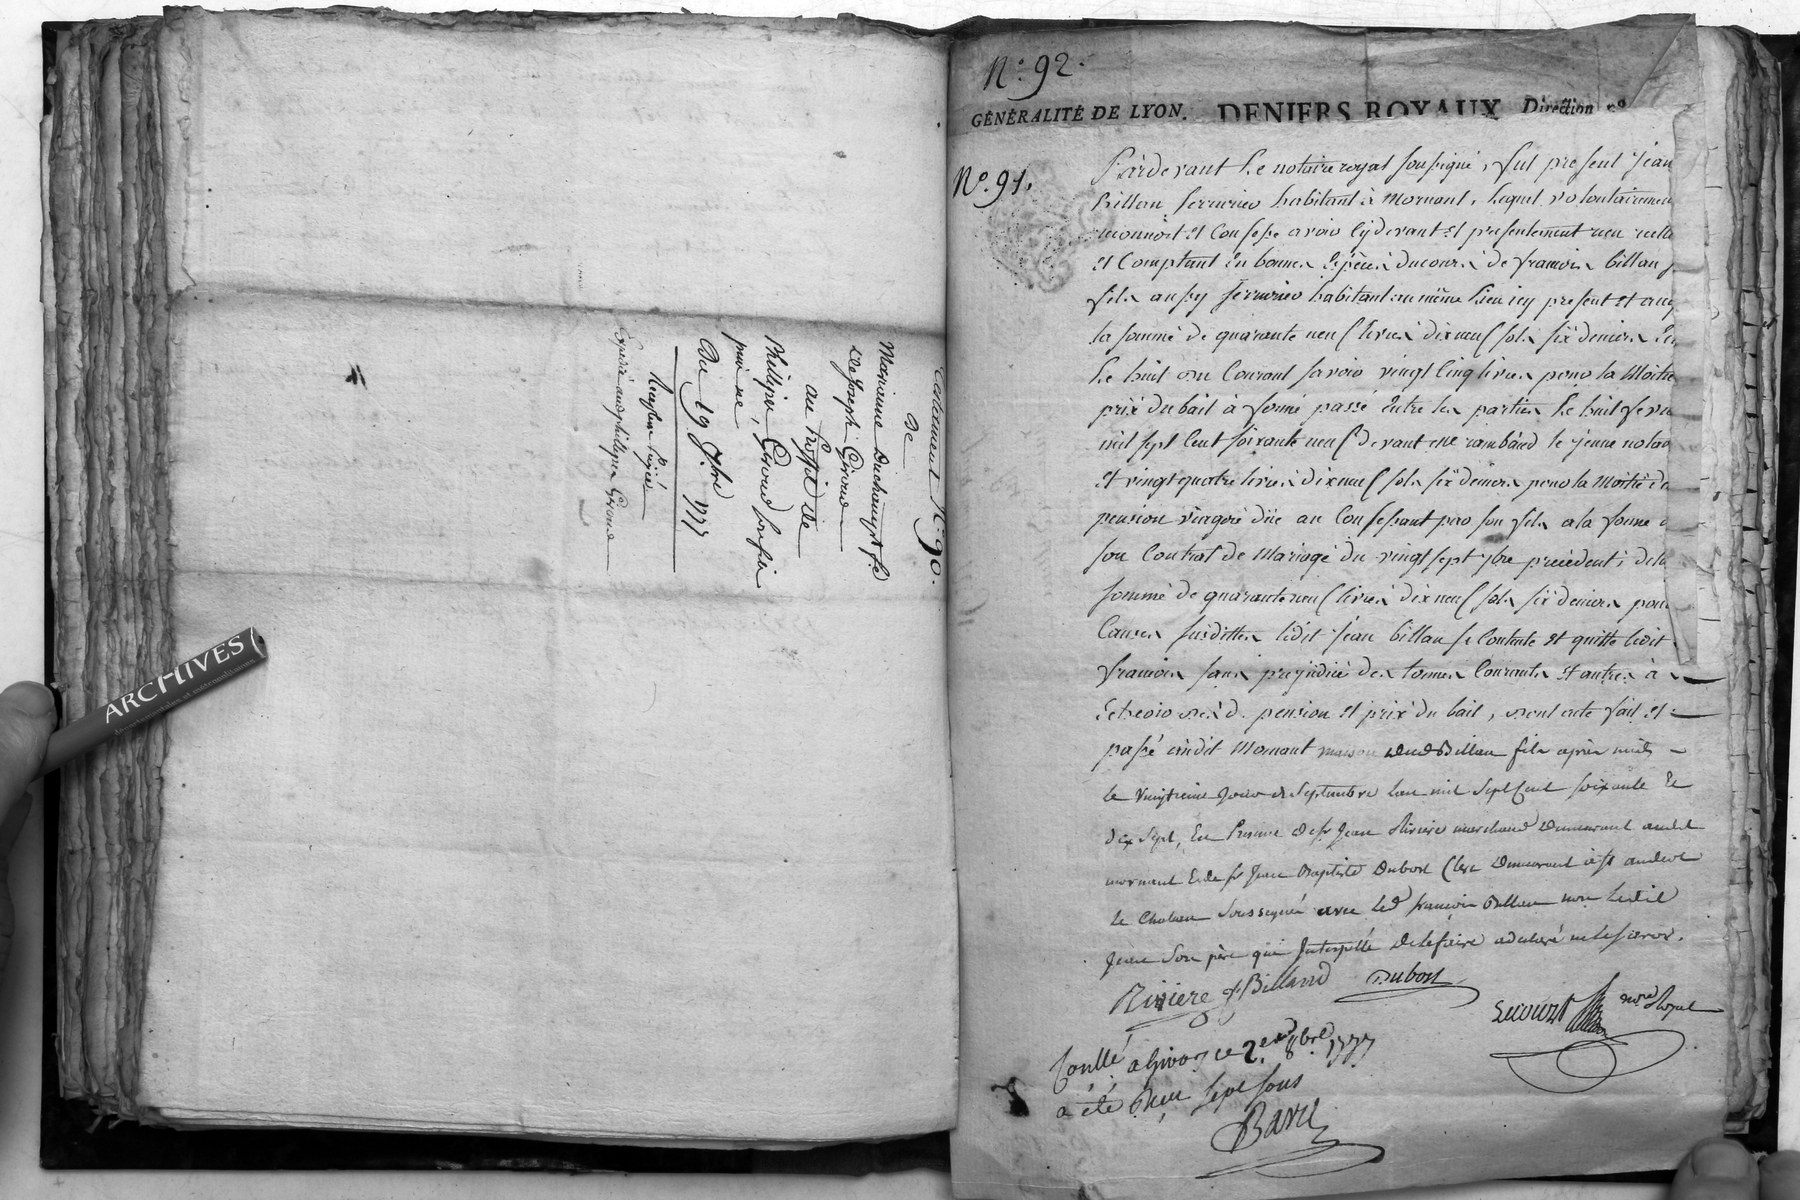 Testament N.° 90.
de
Marianne Duchampt fe
de Joseph Giraud
au proffit de
Philippe Giraud son fils
puiné
Du 19 7bre 1777
Expédié audit philippe Giraud
ARCHIVES
N.° 92.
GÉNÉRALITÉ DE LYON. DENIERS ROYAUX Direction
N.° 91.
Pardevant Le notaire royal soussigné, fut present jean
billan serrurier habitant à Mornant, Lequel volontairement
reconnoit et Confesse avoir cydevant et presentement reçu
et Comptant En bonnes Espèces du cours de françois billan
fils aussy serrurier habitant au même Lieu icy present et
la somme de quarante neuf livres dixneuf sols six deniers
Le huit du Courant savoir vingt cinq livres pour la Moitié
prix du bail à ferme passé Entre les parties Le huit
mil sept Cent soixante neuf devant me rambaud le jeune
et vingt quatre livres dixneuf sols six deniers pour la Moitié
pension viagere düe au Confessant par son fils a la forme
son Contrat de Mariage du vingt sept 7bre precedent; de
somme de quarante neuf livres dixneuf sols six deniers pour
Causes susdittes ledit jean billan se Contente et quitte ledit
françois sans prejudice des termes Courants et autres à
Echeoir de pension et prix du bail, dont acte fait et
passé audit Mornant maison dud Billan fils après midi
le Vingtieme jour de Septembre l'an mil Sept Cent soixante et
dix Sept, En Presence de sr Jean Riviere marchand demeurant audit
mornant et de sr Jean Baptiste Dubost Clerc demeurant à st andeol
le Chateau Soussignés avec led françois Billan non Ledit
Jean Son père qui Interpellé de le faire a declaré ne le savoir.
Riviere f Billand Dubost
Lecourt nore Royal
Conllé a Givors ce 2.e 8bre 1777
a été Reçu sept sous
Barel